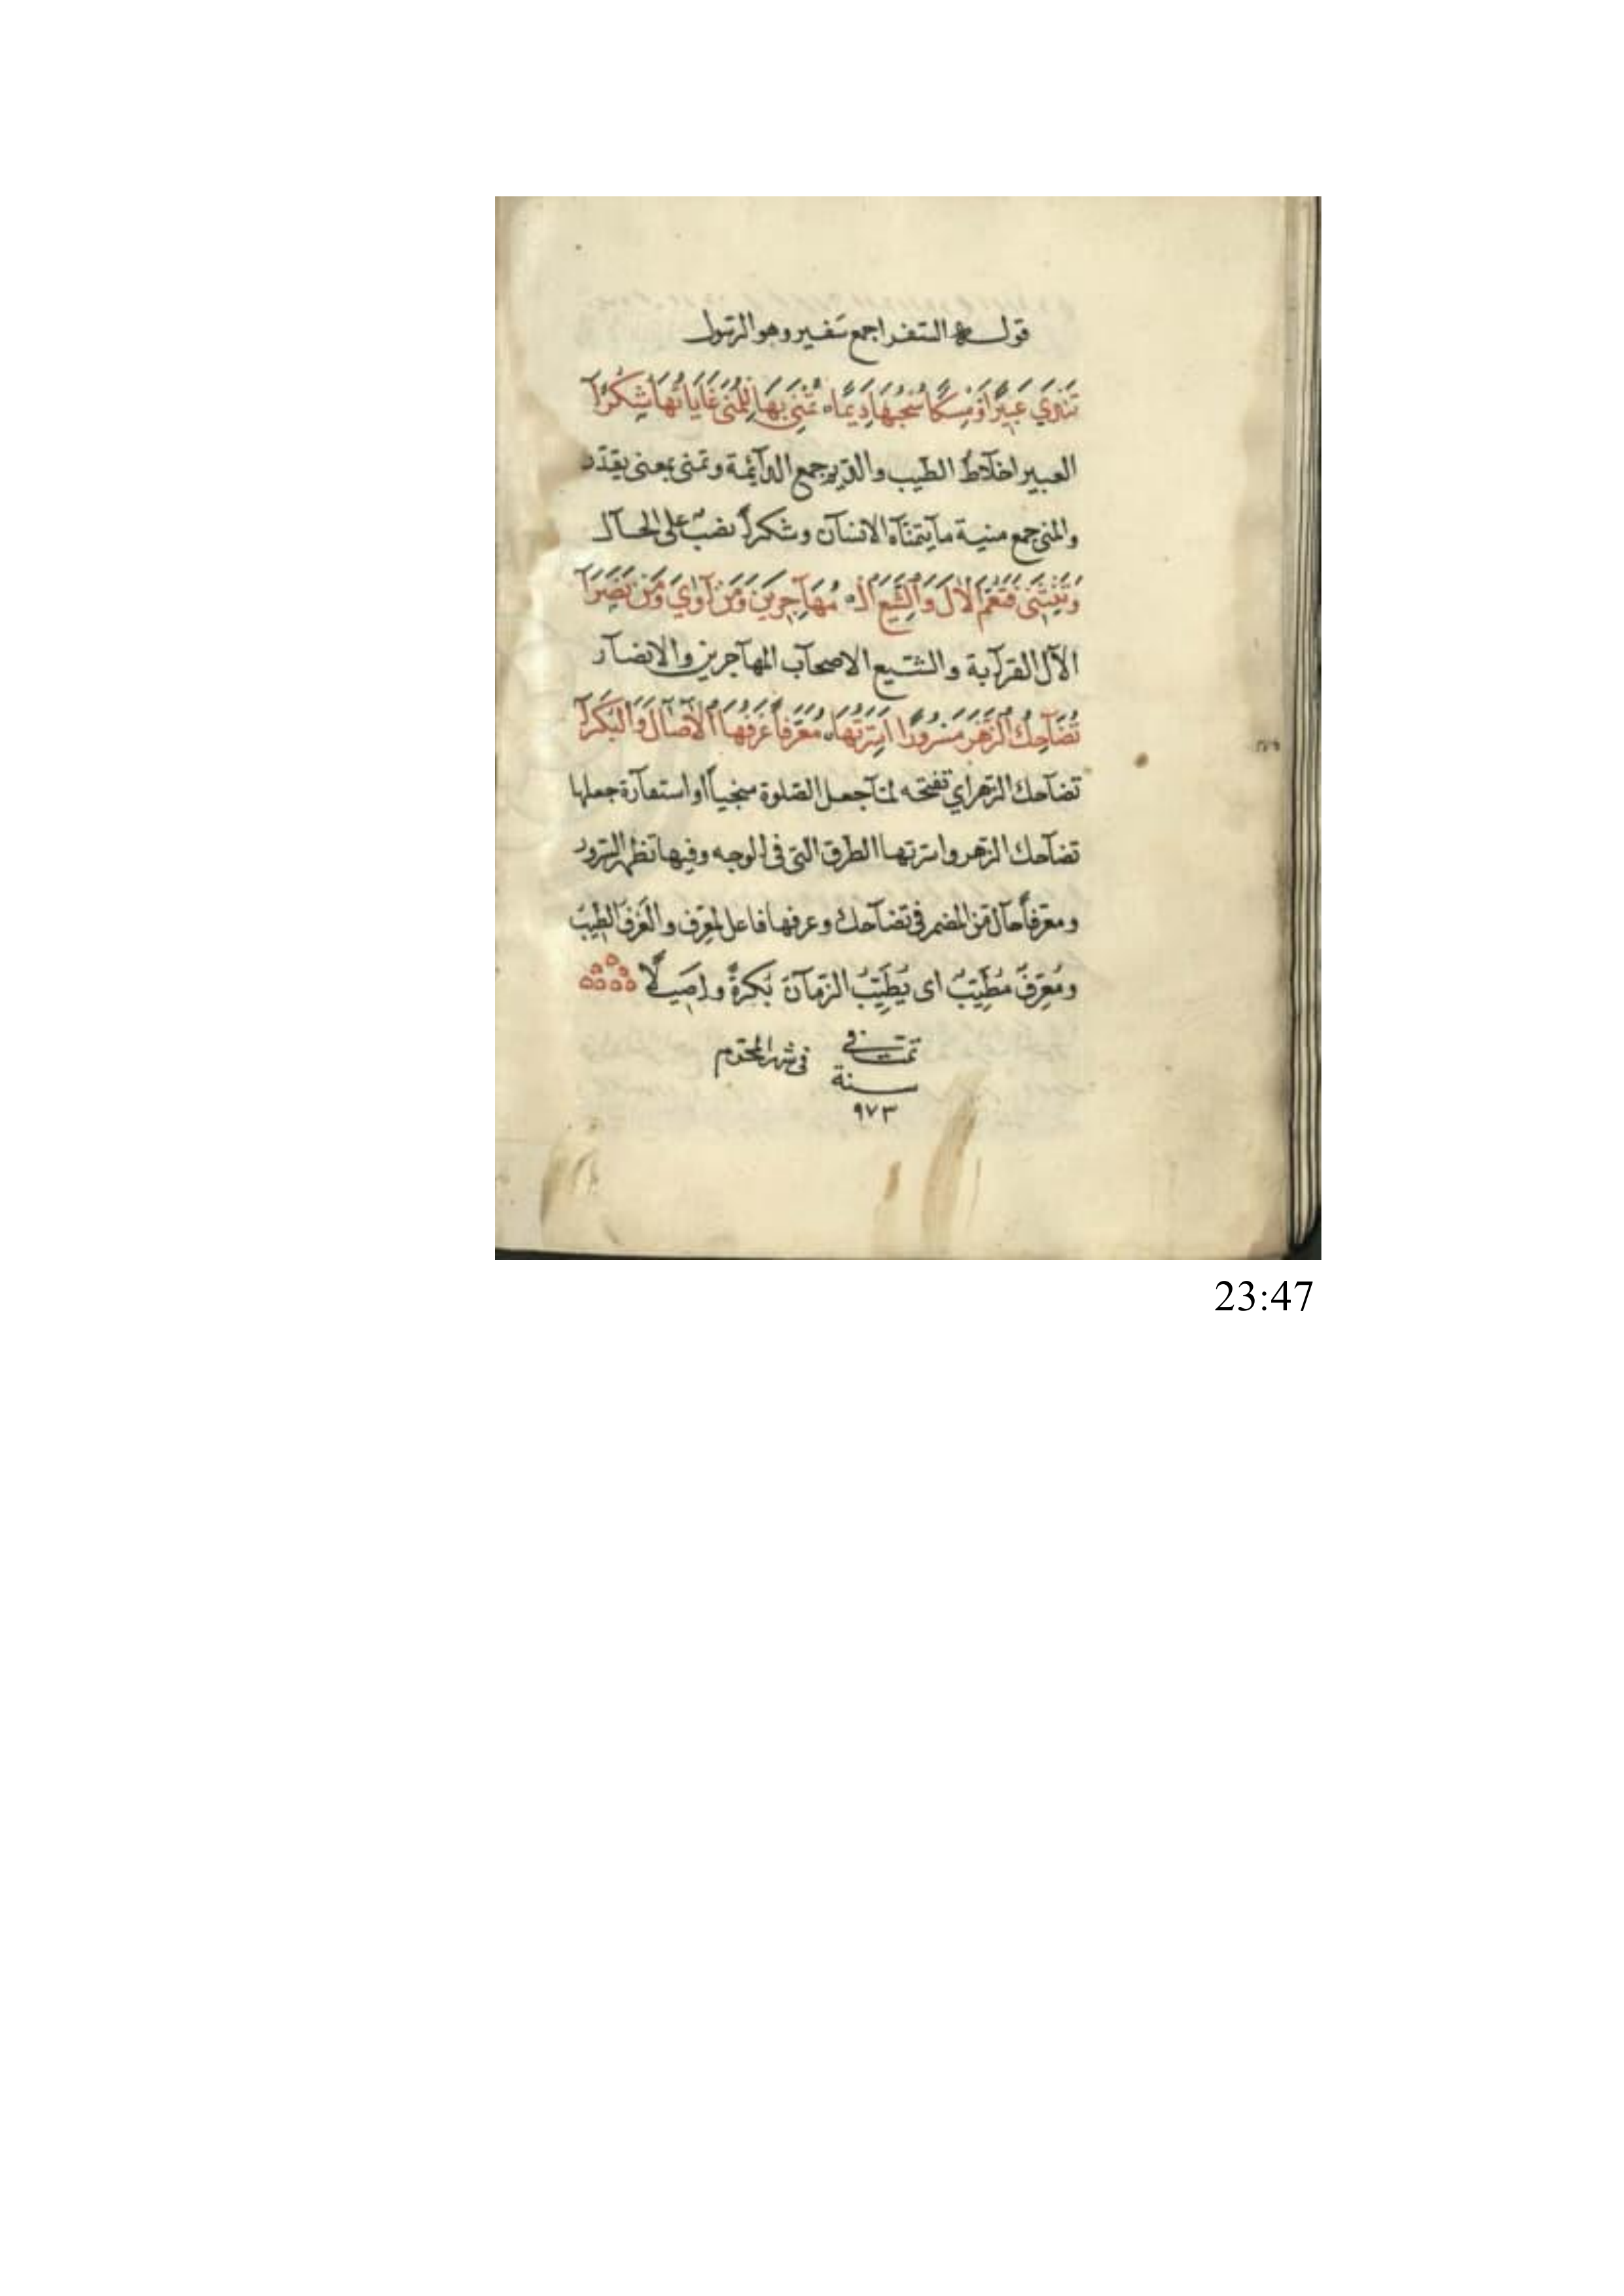 قوله السفرا جمع سفير وهو الرسول
عَبِيرًا وَمِسْكًا سُحْبُهَا دِيَمًا تُمْنَى بِهَا لِلْمُنَى غَايَاتُهَا شُكُرَا
العبير اخلاط الطيب والديم جمع الدآئمة وتمنى بمعنى يقدّر
والمنى جمع منية مايتمنّاه الانسان وشكراً نصبٌ على الحال
وَتَنْثَنِي فَتَعُمُّ الآلَ وَالشِّيَعَ الـ مُهَاجِرِينَ وَمَنْ آوَى وَمَنْ نَصَرَا
الآل القرآبة والشيع الاصحآب المهآجرين والانصآر
تُضَاحِكُ الزَّهْرَ مَسْرُورًا أَسِرَّتُهَا مُعَرِّفاً عَرْفُهَا الآصَالَ وَالْبُكَرَا
تضآحك الزهر اي تفتحه لمّا جعل الصلوة سحباً او استعآرة جعلها
تضآحك الزهر واسرتها الطرق التي في الوجه وفيها تظهر السرور
ومعرفاً حآل من المضمر في تضآحك وعرفها فاعل لمعرف والعَرف الطيب
ومُعرِّفٌ مُطَيِّبٌ اى يُطَيِّبُ الزمآن بُكرةً واَصِيلًا
تمت في في شهر المحرم
سنة
٩٧٣
23:47